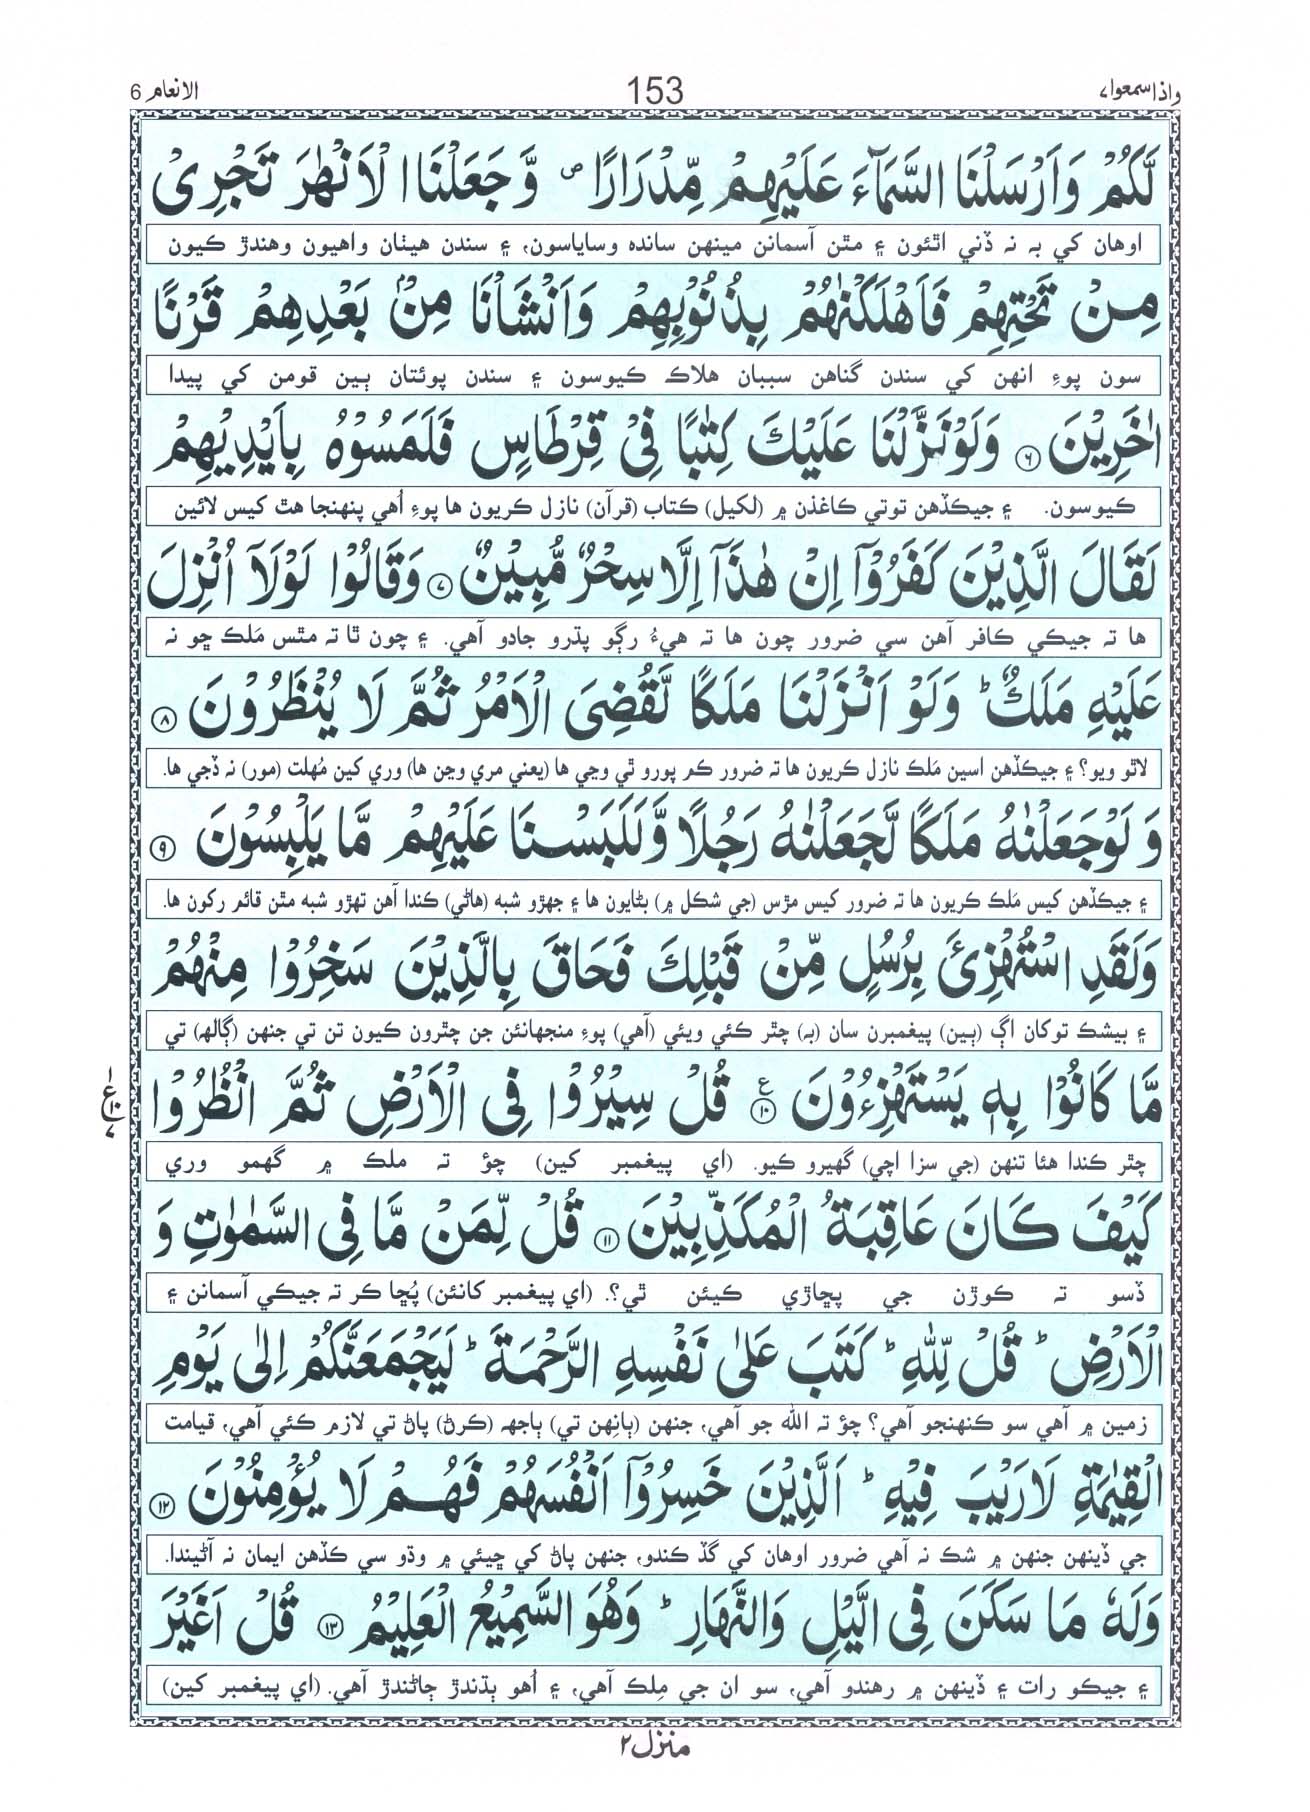 واذاسمعوا۷ 153 الانعام 6
لَّكُمْ وَاَرْسَلْنَا السَّمَآءَ عَلَيْهِمْ مِّدْرَارًا ۪ وَّجَعَلْنَا الْاَنْهٰرَ تَجْرِیْ
اوهان کي به نہ ڏني اٿئون ۽ مٿن آسمانن مينهن سانده وساياسون، ۽ سندن هيٺان واهيون وهندڙ ڪيون
مِنْ تَحْتِهِمْ فَاَهْلَكْنٰهُمْ بِذُنُوْبِهِمْ وَاَنْشَاْنَا مِنْۢ بَعْدِهِمْ قَرْنًا
سون پوءِ انهن کي سندن گناهن سببان هلاڪ ڪيوسون ۽ سندن پوئتان ٻين قومن کي پيدا
اٰخَرِيْنَ ۶ وَلَوْ نَزَّلْنَا عَلَيْكَ كِتٰبًا فِیْ قِرْطَاسٍ فَلَمَسُوْهُ بِاَيْدِيْهِمْ
ڪيوسون. ۽ جيڪڏهن توتي ڪاغذن ۾ (لکيل) ڪتاب (قرآن) نازل ڪريون ها پوءِ اُهي پنهنجا هٿ کيس لائين
لَقَالَ الَّذِيْنَ كَفَرُوْۤا اِنْ هٰذَاۤ اِلَّا سِحْرٌ مُّبِيْنٌ ۷ وَقَالُوْا لَوْلَاۤ اُنْزِلَ
ها تہ جيڪي ڪافر آهن سي ضرور چون ها تہ هيءُ رڳو پڌرو جادو آهي. ۽ چون ٿا تہ مٿس مَلڪ ڇو نہ
عَلَيْهِ مَلَكٌ ؕ وَلَوْ اَنْزَلْنَا مَلَكًا لَّقُضِیَ الْاَمْرُ ثُمَّ لَا يُنْظَرُوْنَ ۸
لاٿو ويو؟ ۽ جيڪڏهن اسين مَلڪ نازل ڪريون ها تہ ضرور ڪم پورو ٿي وڃي ها (يعني مري وڃن ها) وري کين مُهلت (مور) نہ ڏجي ها.
وَلَوْ جَعَلْنٰهُ مَلَكًا لَّجَعَلْنٰهُ رَجُلًا وَّلَلَبَسْنَا عَلَيْهِمْ مَّا يَلْبِسُوْنَ ۹
۽ جيڪڏهن کيس مَلڪ ڪريون ها تہ ضرور کيس مڙس (جي شڪل ۾) بڻايون ها ۽ جهڙو شبہ (هاڻي) ڪندا آهن تهڙو شبہ مٿن قائم رکون ها.
وَلَقَدِ اسْتُهْزِئَ بِرُسُلٍ مِّنْ قَبْلِكَ فَحَاقَ بِالَّذِيْنَ سَخِرُوْا مِنْهُمْ
۽ بيشڪ توکان اڳ (ٻين) پيغمبرن سان (بہ) چٿر ڪئي ويئي (آهي) پوءِ منجهانئن جن چٿرون ڪيون تن تي جنهن (ڳالهہ) تي
مَّا كَانُوْا بِهٖ يَسْتَهْزِءُوْنَ ۱۰ ع قُلْ سِيْرُوْا فِی الْاَرْضِ ثُمَّ انْظُرُوْا
۱ ع ۱۰ ۷
چٿر ڪندا هئا تنهن (جي سزا اچي) گهيرو ڪيو. (اي پيغمبر کين) چؤ تہ ملڪ ۾ گهمو وري
كَيْفَ كَانَ عَاقِبَةُ الْمُكَذِّبِيْنَ ۱۱ قُلْ لِّمَنْ مَّا فِی السَّمٰوٰتِ وَ
ڏسو تہ ڪوڙن جي پڇاڙي ڪيئن ٿي؟. (اي پيغمبر کانئن) پُڇا ڪر تہ جيڪي آسمانن ۽
الْاَرْضِ ؕ قُلْ لِّلّٰهِ ؕ كَتَبَ عَلٰى نَفْسِهِ الرَّحْمَةَ ؕ لَيَجْمَعَنَّكُمْ اِلٰى يَوْمِ
زمين ۾ آهي سو ڪنهنجو آهي؟ چؤ تہ الله جو آهي، جنهن (ٻانهن تي) ٻاجهہ (ڪرڻ) پاڻ تي لازم ڪئي آهي، قيامت
الْقِيٰمَةِ لَا رَيْبَ فِيْهِ ؕ اَلَّذِيْنَ خَسِرُوْۤا اَنْفُسَهُمْ فَهُمْ لَا يُؤْمِنُوْنَ ۱۲
جي ڏينهن جنهن ۾ شڪ نہ آهي ضرور اوهان کي گڏ ڪندو، جنهن پاڻ کي ڇيئي ۾ وڌو سي ڪڏهن ايمان نہ آڻيندا.
وَلَهٗ مَا سَكَنَ فِی الَّيْلِ وَالنَّهَارِ ؕ وَهُوَ السَّمِيْعُ الْعَلِيْمُ ۱۳ قُلْ اَغَيْرَ
۽ جيڪو رات ۽ ڏينهن ۾ رهندو آهي، سو ان جي مِلڪ آهي، ۽ اُهو ٻڌندڙ ڄاڻندڙ آهي. (اي پيغمبر کين)
منزل۲